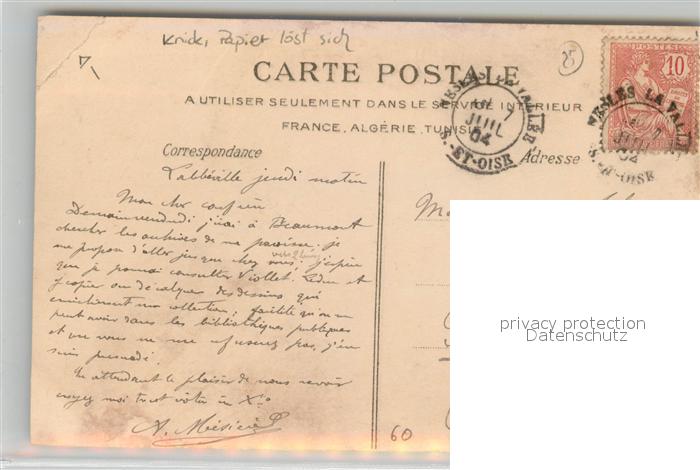 Knick, Papier löst sich
25
CARTE POSTALE
A UTILISER SEULEMENT DANS LE SERVICE INTERIEUR
FRANCE, ALGÉRIE, TUNISIE
POSTES
10
NESLES LA VALLÉE
7
JUIL
04
S.-ET-OISE
NESLES LA VALLÉE
7
JUIL
04
S.-ET-OISE
Correspondance
Adresse
Labbéville jeudi matin
Mon cher confrère
Demain vendredi j'irai à Beaumont
chercher les archives de ma paroisse. je
me propose d'aller jusque chez vous; j'espère
vers 2 heures
que je pourrai consulter Viollet. Leduc et
copier ou décalquer des dessins qui
enrichiront ma collection; facilité qu'on ne
peut avoir dans les bibliothèques publiques
et que vous ne me refuserez pas, j'en
suis persuadé.
En attendant le plaisir de vous revoir
croyez moi tout vôtre in Xto
A.
60
privacy protection
Datenschutz